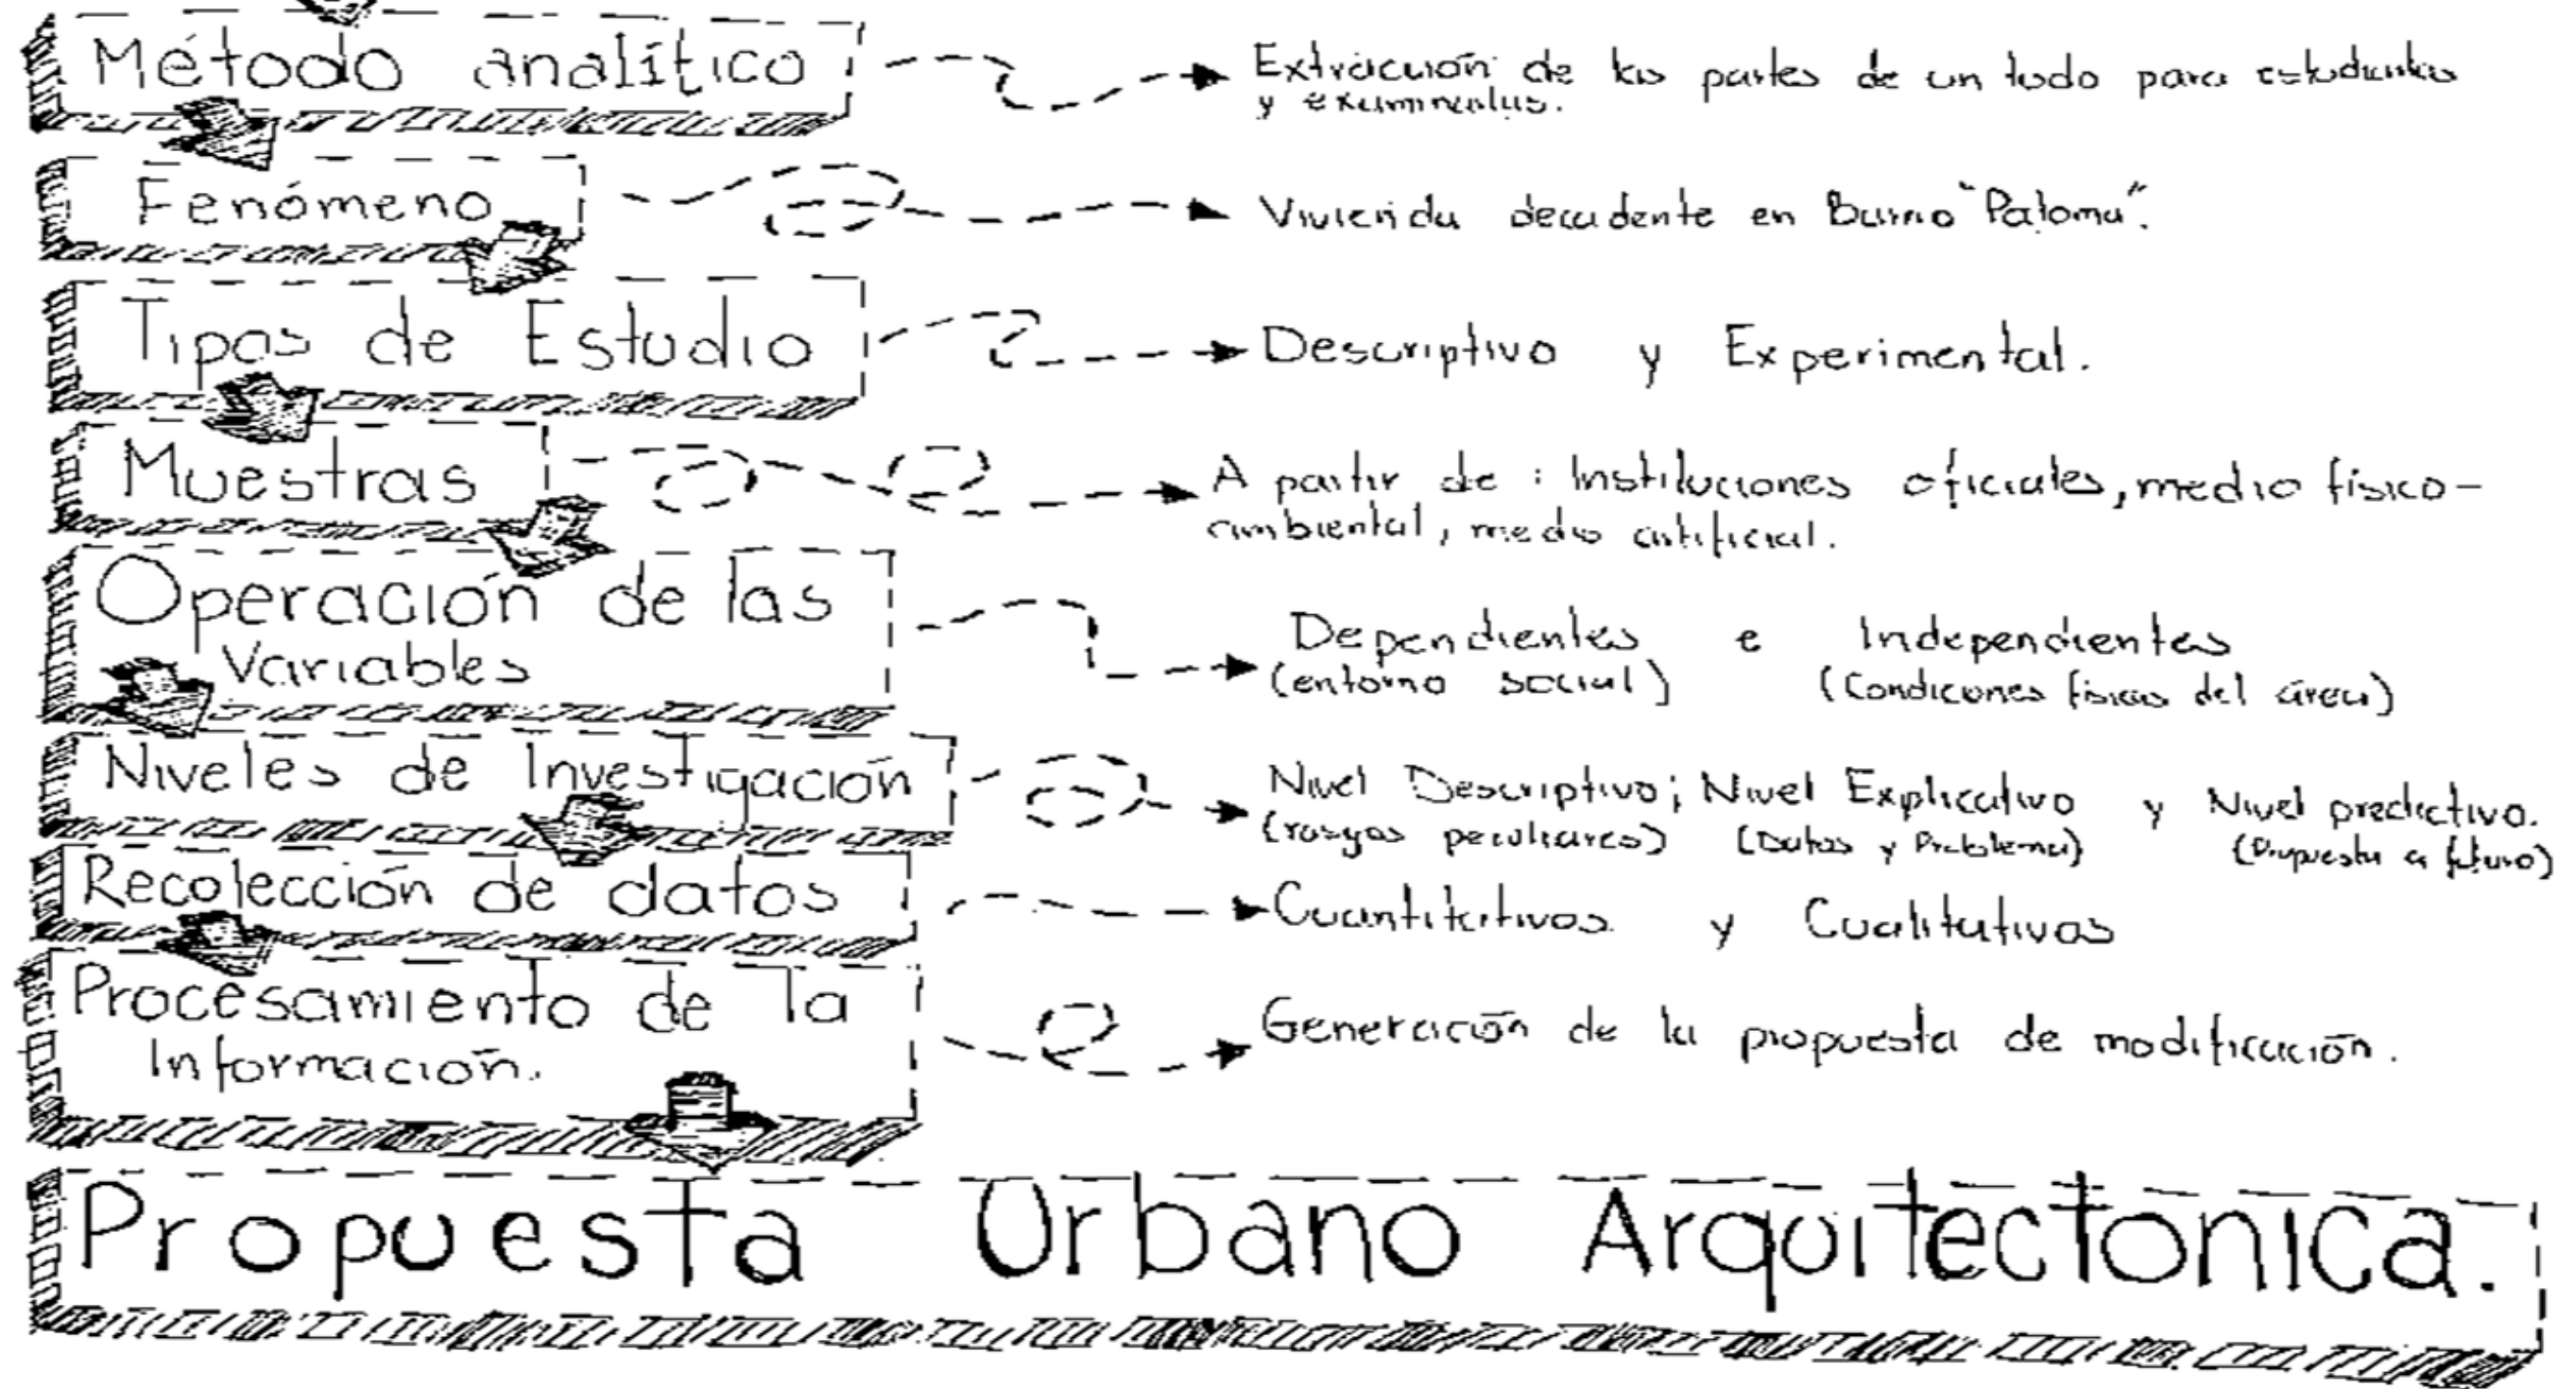 Método analítico
Extracción de las partes de un todo para estudiarlas
y examinarlas.
Fenómeno
Vivienda decadente en Barrio "Paloma".
Tipos de Estudio
Descriptivo y Experimental.
Muestras
A partir de : Instituciones oficiales, medio físico-
ambiental, medio artificial.
Operación de las
Variables
Dependientes e Independientes
(entorno social) (Condiciones físicas del área)
Niveles de Investigación
Nivel Descriptivo; Nivel Explicativo y Nivel predictivo.
(rasgos peculiares) (Datos y Problema) (Propuesta a futuro)
Recolección de datos
Cuantitativos y Cualitativos
Procesamiento de la
Información.
Generación de la propuesta de modificación.
Propuesta Urbano Arquitectonica.